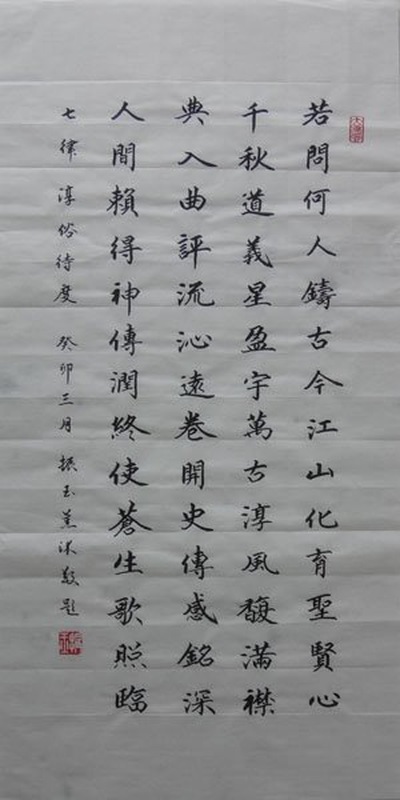 若問何人鑄古今江山化育聖賢心
千秋道義星盈宇萬古淳風馥滿襟
典入曲評流沁遠卷開史傳感銘深
人間賴得神傳潤終使蒼生歌照臨
七律 淳俗待度 癸卯三月 振玉薰沐敬題